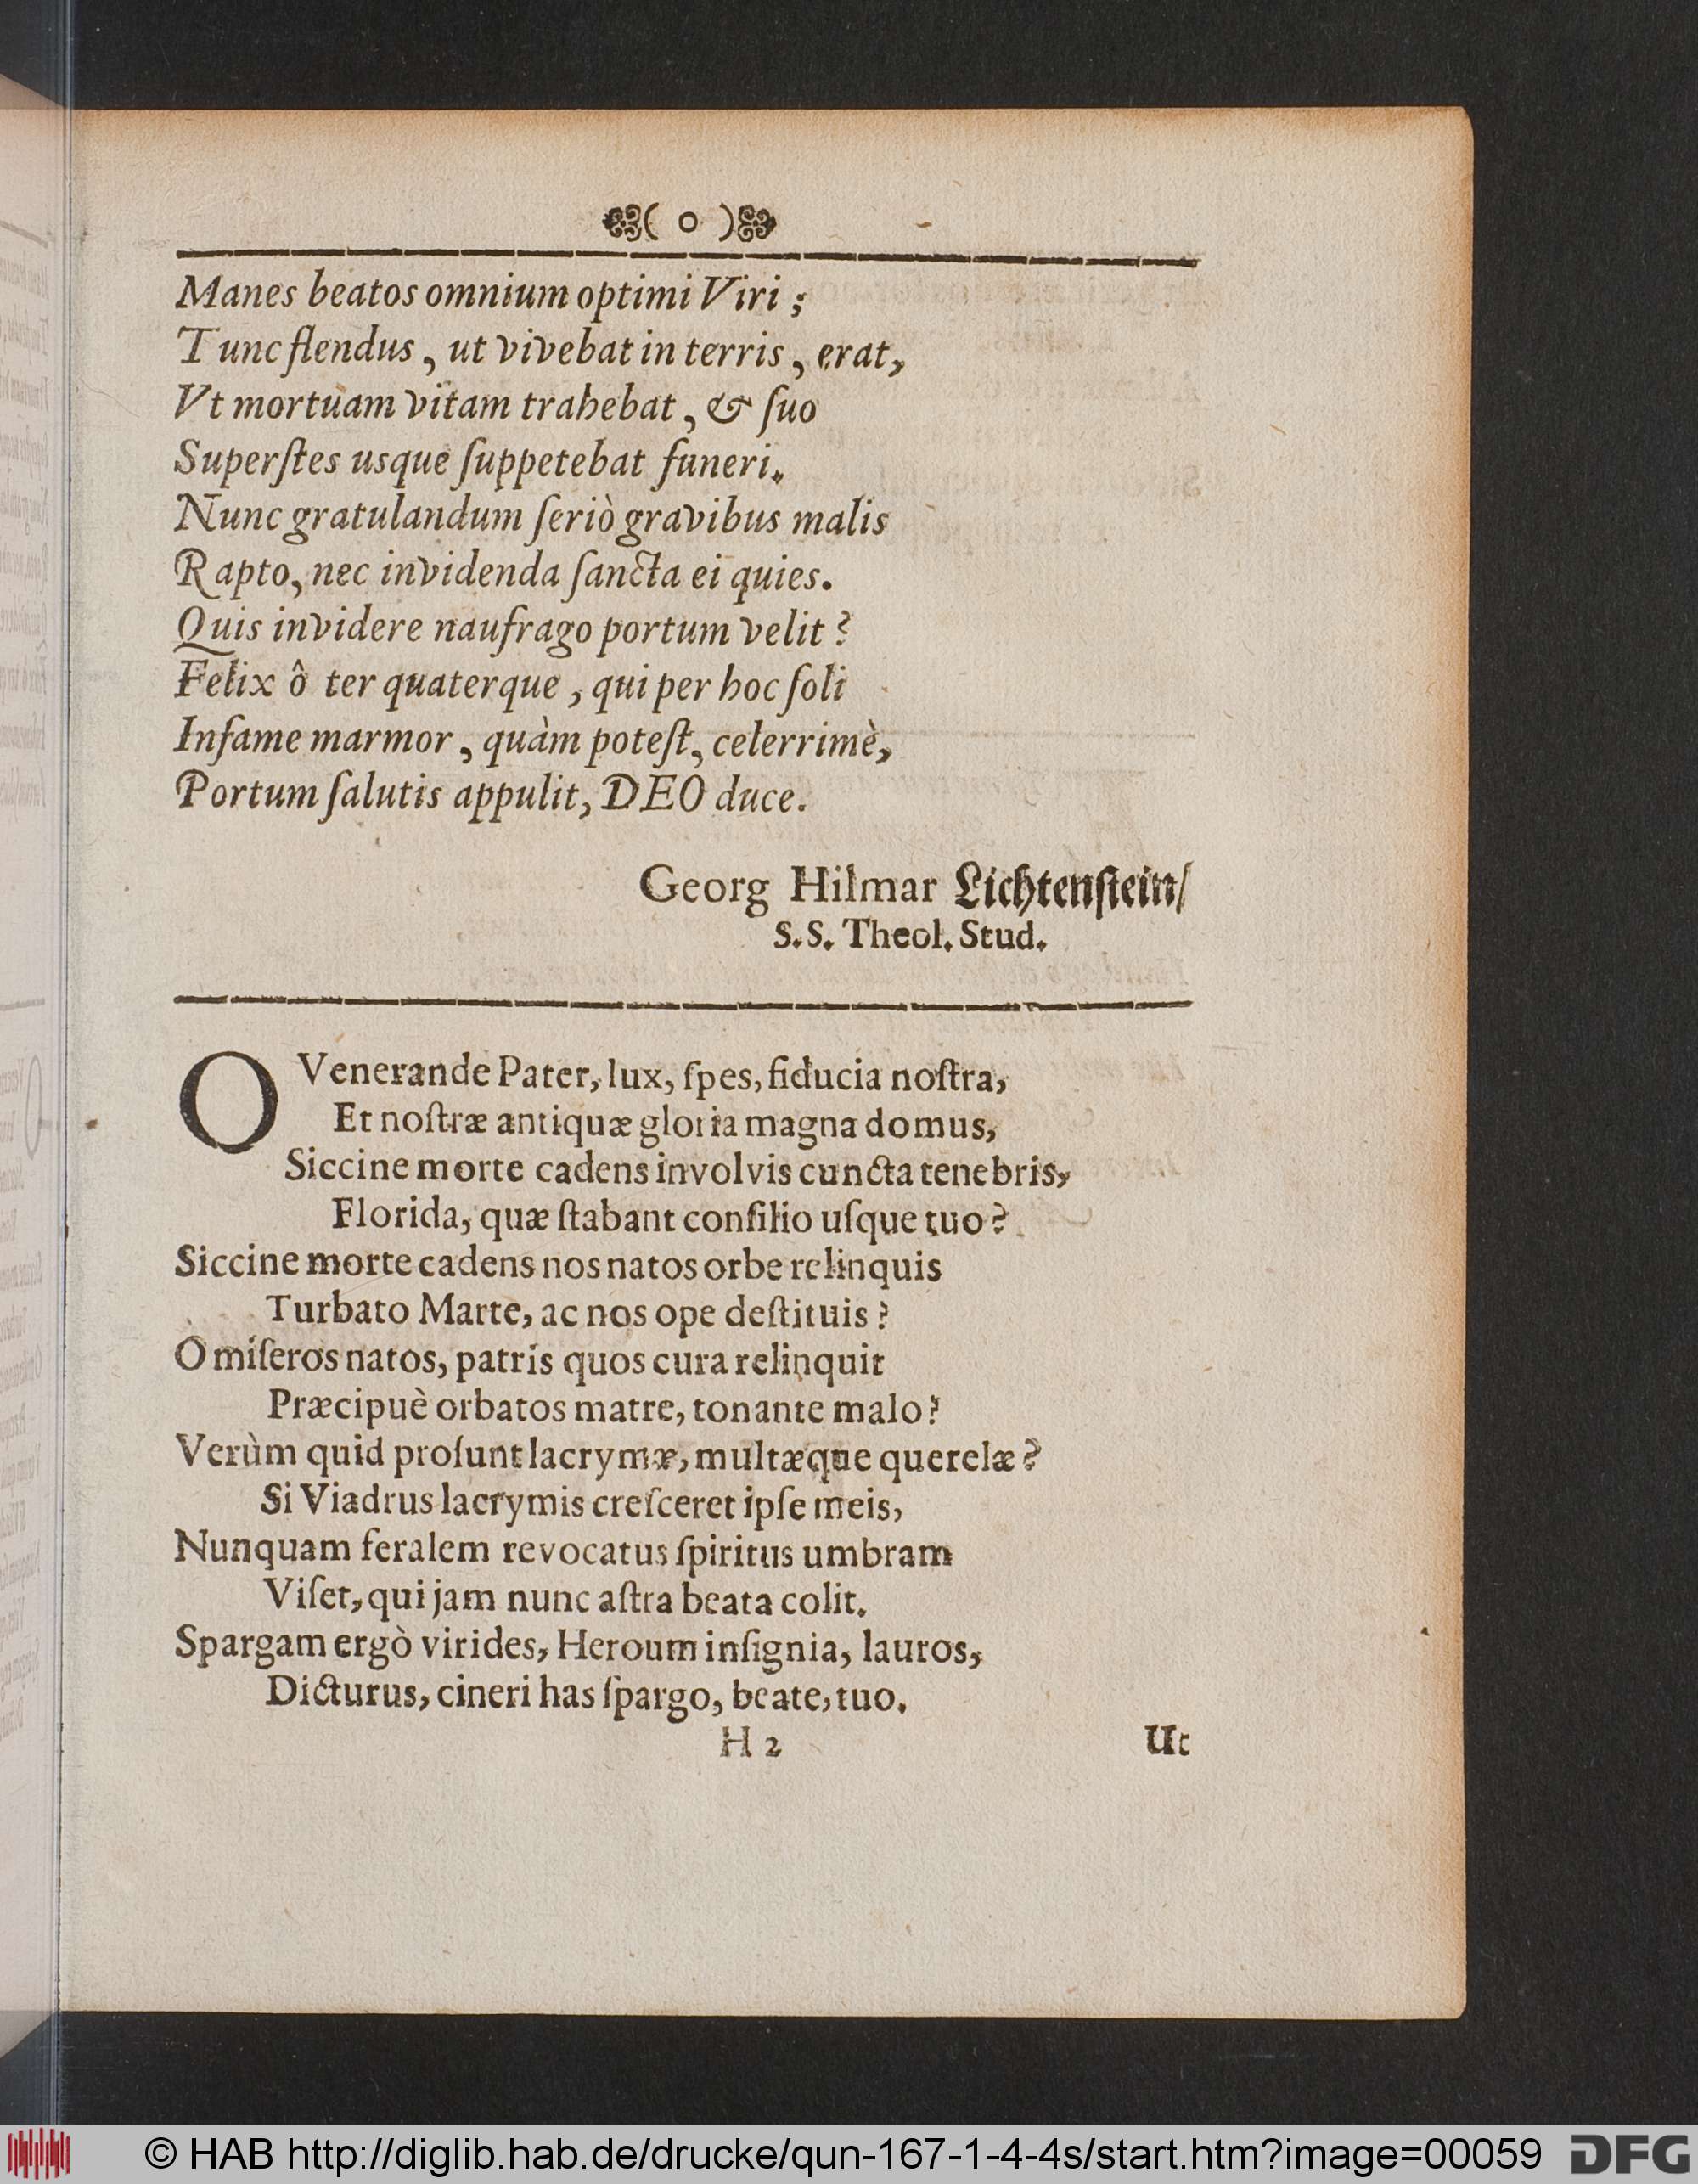 ( o )
Manes beatos omnium optimi Viri ;
Tunc flendus , ut vivebat in terris , erat,
Vt mortuam vitam trahebat , & ſuo
Superſtes usque ſuppetebat funeri.
Nunc gratulandum ſeriò gravibus malis
Rapto, nec invidenda ſancta ei quies.
Quis invidere naufrago portum velit ?
Felix ô ter quaterque , qui per hoc ſoli
Infame marmor , quàm poteſt, celerrimè,
Portum ſalutis appulit, DEO duce.
Georg Hilmar Lichtenſtein/
S. S. Theol. Stud.
O Venerande Pater, lux, ſpes, fiducia noſtra,
Et noſtræ antiquæ gloria magna domus,
Siccine morte cadens involvis cuncta tenebris,
Florida, quæ ſtabant conſilio uſque tuo ?
Siccine morte cadens nos natos orbe relinquis
Turbato Marte, ac nos ope deſtituis ?
O miſeros natos, patris quos cura relinquit
Præcipuè orbatos matre, tonante malo ?
Verùm quid proſunt lacrymæ, multæque querelæ ?
Si Viadrus lacrymis creſceret ipſe meis,
Nunquam feralem revocatus ſpiritus umbram
Viſet, qui jam nunc aſtra beata colit.
Spargam ergò virides, Heroum inſignia, lauros,
Dicturus, cineri has ſpargo, beate, tuo.
H 2 Ut
© HAB http://diglib.hab.de/drucke/qun-167-1-4-4s/start.htm?image=00059 DFG